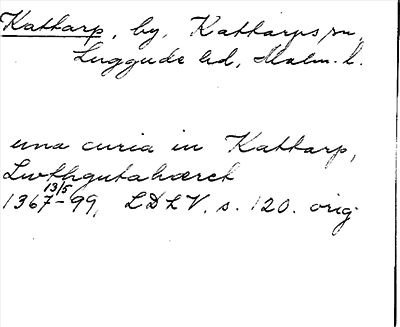 Kattarp, by, Kattarps sn,
Luggude hd, Malm. l.
una curia in Kattarp,
Lwthgutahæret
1367 13/5 - 99, LDLV. s. 120. orig